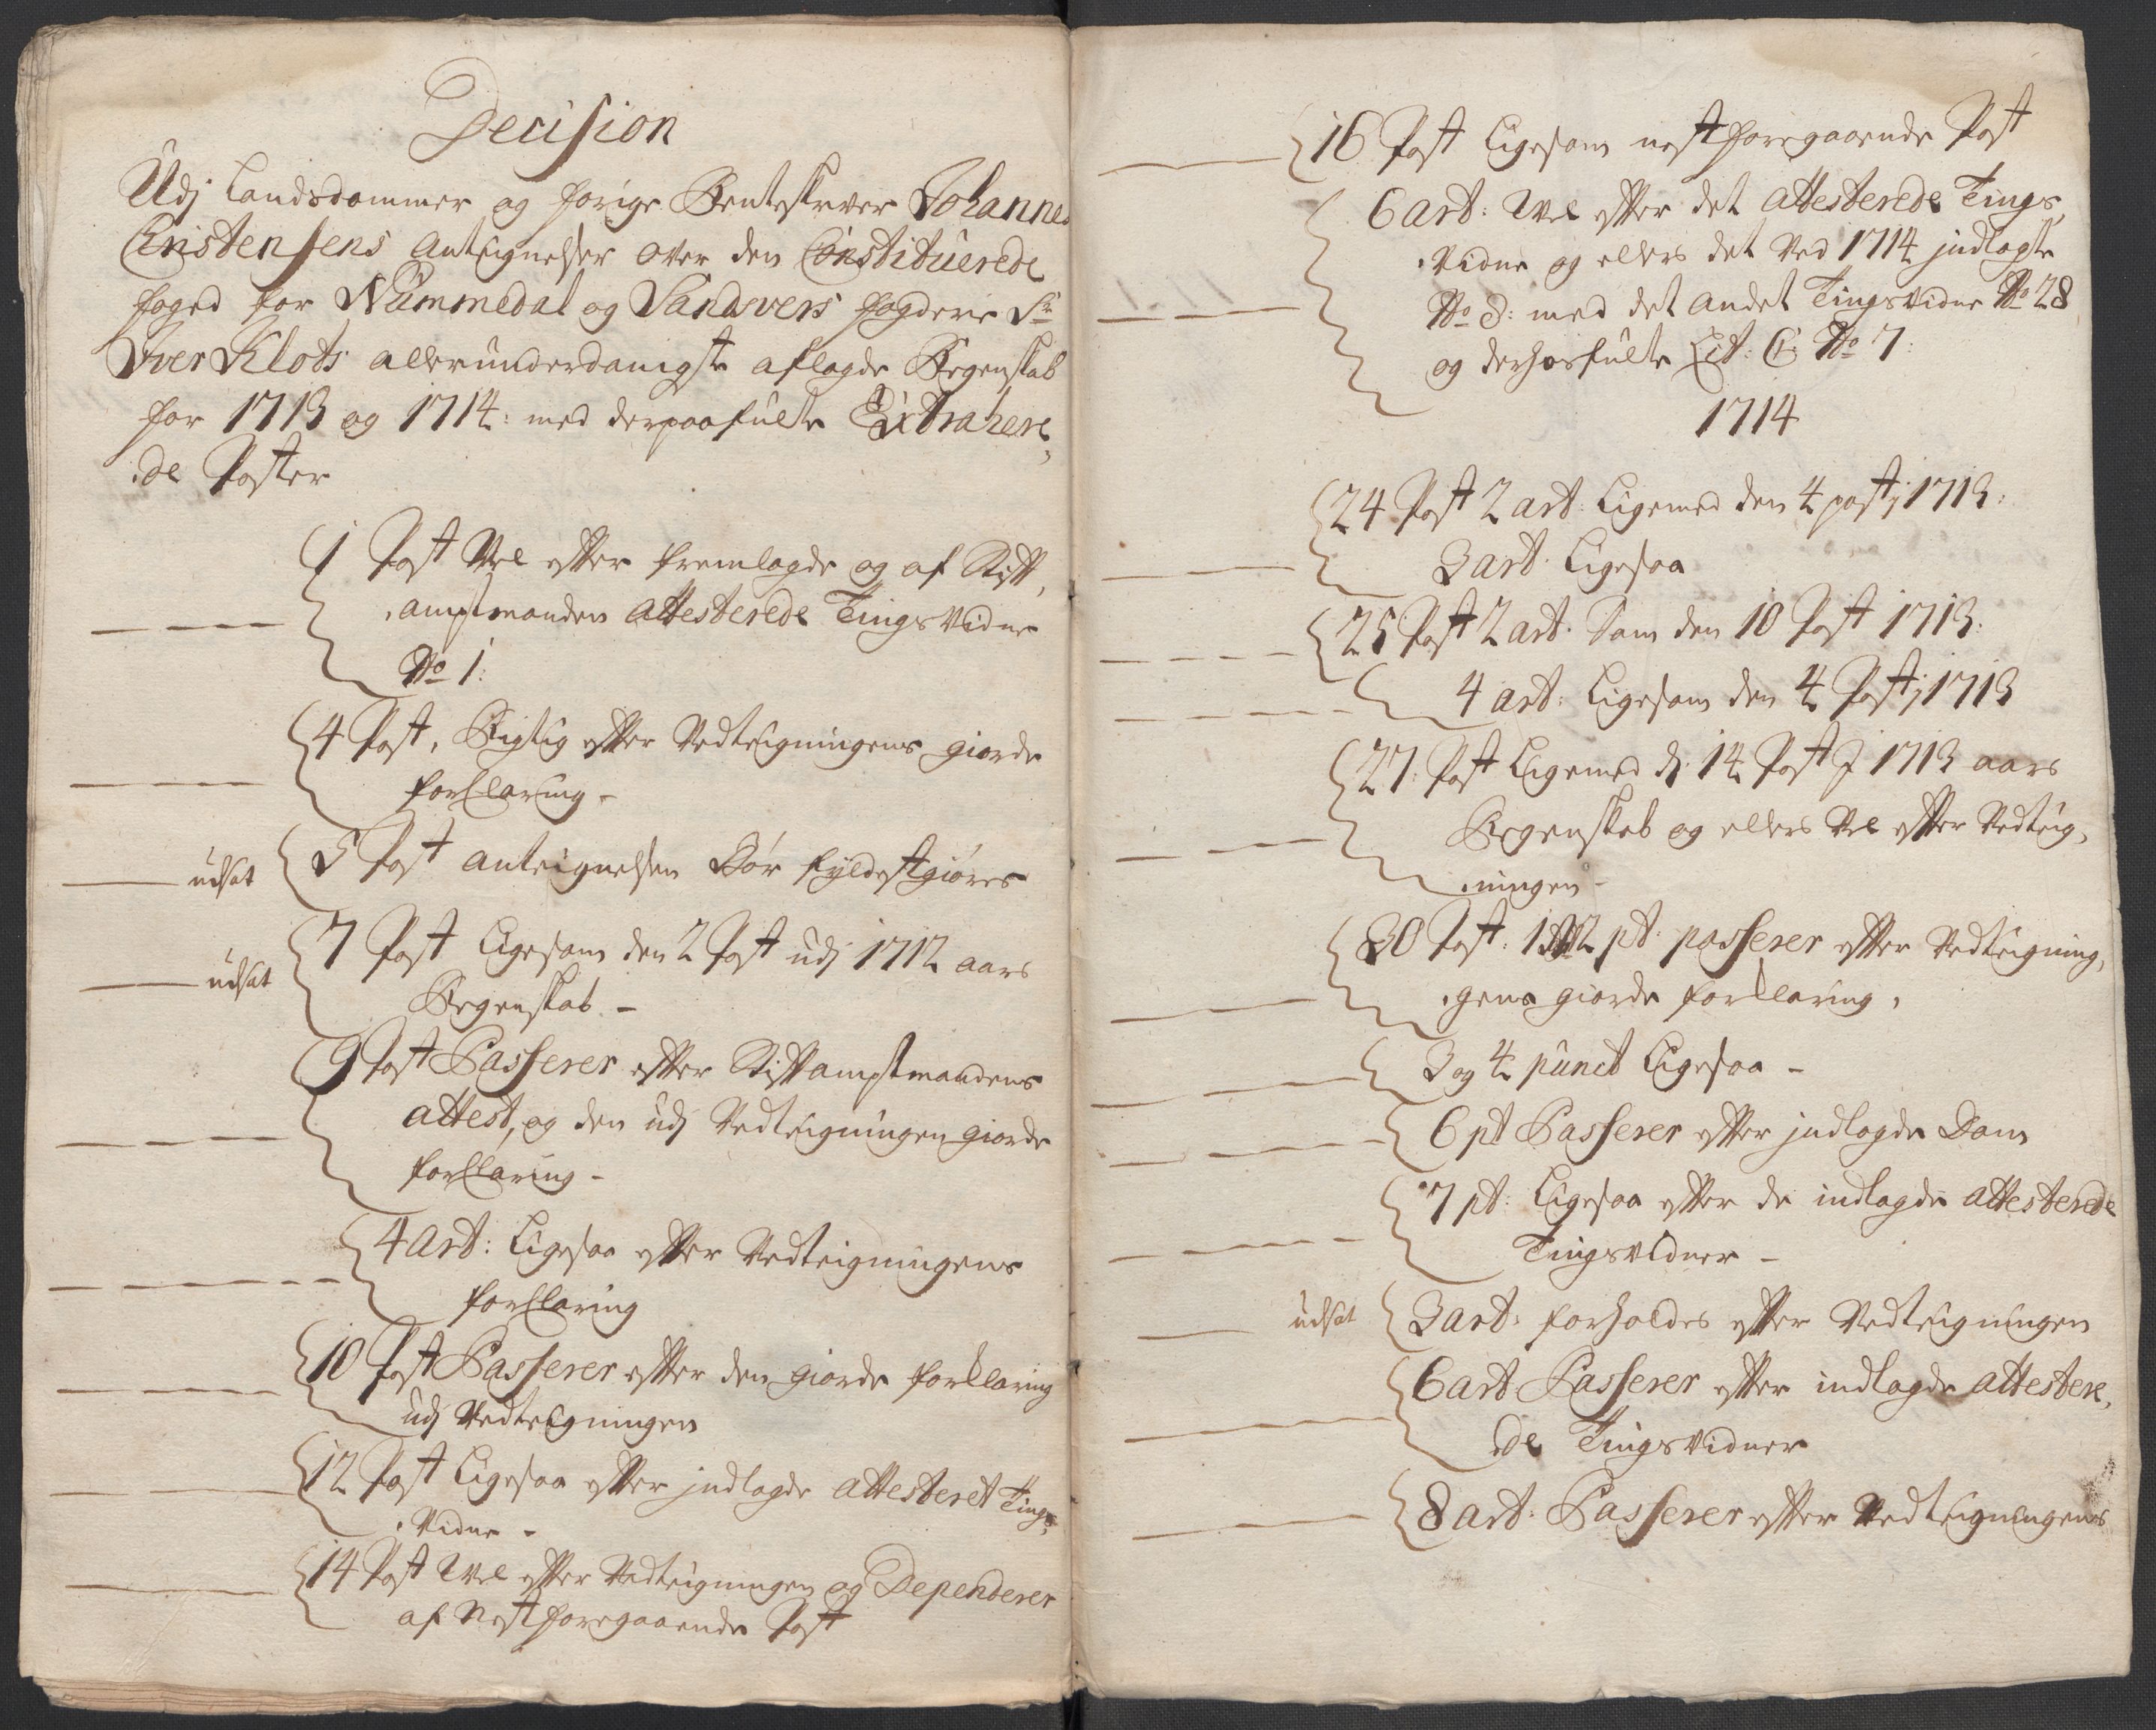 Decision
Udj Landsdommer og forige Renteskrver Johannes
Christensens Anteignelser over den Constituerede
foged for Nummedal og Sandsvers fogderie Sr
Iver Klots allerunderdanigste aflagde Regenskab
for 1713 og 1714: med derpaafulte Extrahere,
de Poster
1 Post Vel efter fremlagde og af Stift,
amptmanden attesterede TingsVidne
No 1:
4 Post, Rigtig efter Vedteigningens giorde
forklaring -
udsat 5 Post anteignelsen Bør fyldestgiøres
7 Post Ligesom den 2 Post udj 1712 aars
udsat
Regenskab -
9 Post Passerer efter Stiftamptmandens
attest, og den udj Vedteigningen giorde
forklaring -
4 Art: Ligesaa efter Vedteigningens
forklaring
10 Post Passerer efter den giorde forklaring
udj Vedteigningen
12 Post Ligesaa efter jndlagde attesteret Tings
Vidne -
14 Post Vel efter Vedteigningen og Dependerer
af Nestforegaaende Post
16 Post Ligesom nestforegaaende Post
6 art: Vel efter det attesterede Tings,
Vidne og ellers det Ved 1714 jndlagte
No 3: med det andet TingsVidne No 28
og derhosfulte Lit: C: No 7:
1714
24 Post 2 art: Ligemed den 4 post j 1713:
3 art: Ligesaa
25 Post 2 art: Som den 10 Post 1713:
4 art: Ligesom den 4 Post j 1713
27: Post Ligemed d: 14 Post J 1713 aars
Regenskab og ellers Vel efter Vedteig,
ningen -
30 Post: 1 2 pt: passerer efter Vedteigning,
gens giorde forklaring,
3 og 4 punct Ligesaa -
6 pt Passerer efter jndlagde Dom
7 pt: Ligesaa efter de indlagde attesterede
Tingsvidner -
udsat 3 art: forholdes efter Vedteigningen
6 art Passerer efter indlagde attestere,
de TingsVidner
8 art: Passerer efter Vedteigningens